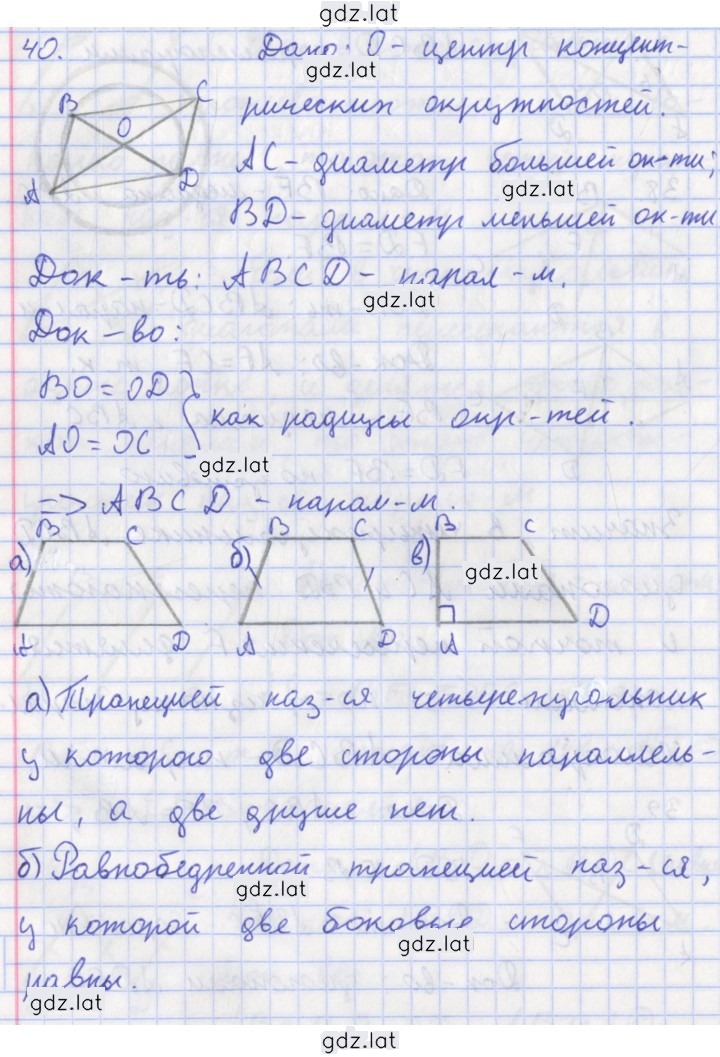 gdz.lat
40. Дано: O - центр концент-
gdz.lat
рических окружностей.
B C O A D
AC - диаметр большей ок-ти;
gdz.lat
BD - диаметр меньшей ок-ти
Док-ть: ABCD - парал-м.
gdz.lat
Док-во:
BO = OD
AO = OC
как радиусы окр-тей.
gdz.lat
=> ABCD - парал-м.
а) B C A D
б) B C A D
в) B C A D
gdz.lat
а) Трапецией наз-ся четырехугольник
у которого две стороны параллель-
ны, а две другие нет.
б) Равнобедренной трапецией наз-ся,
gdz.lat
у которой две боковые стороны
gdz.lat
равны.
gdz.lat
gdz.lat